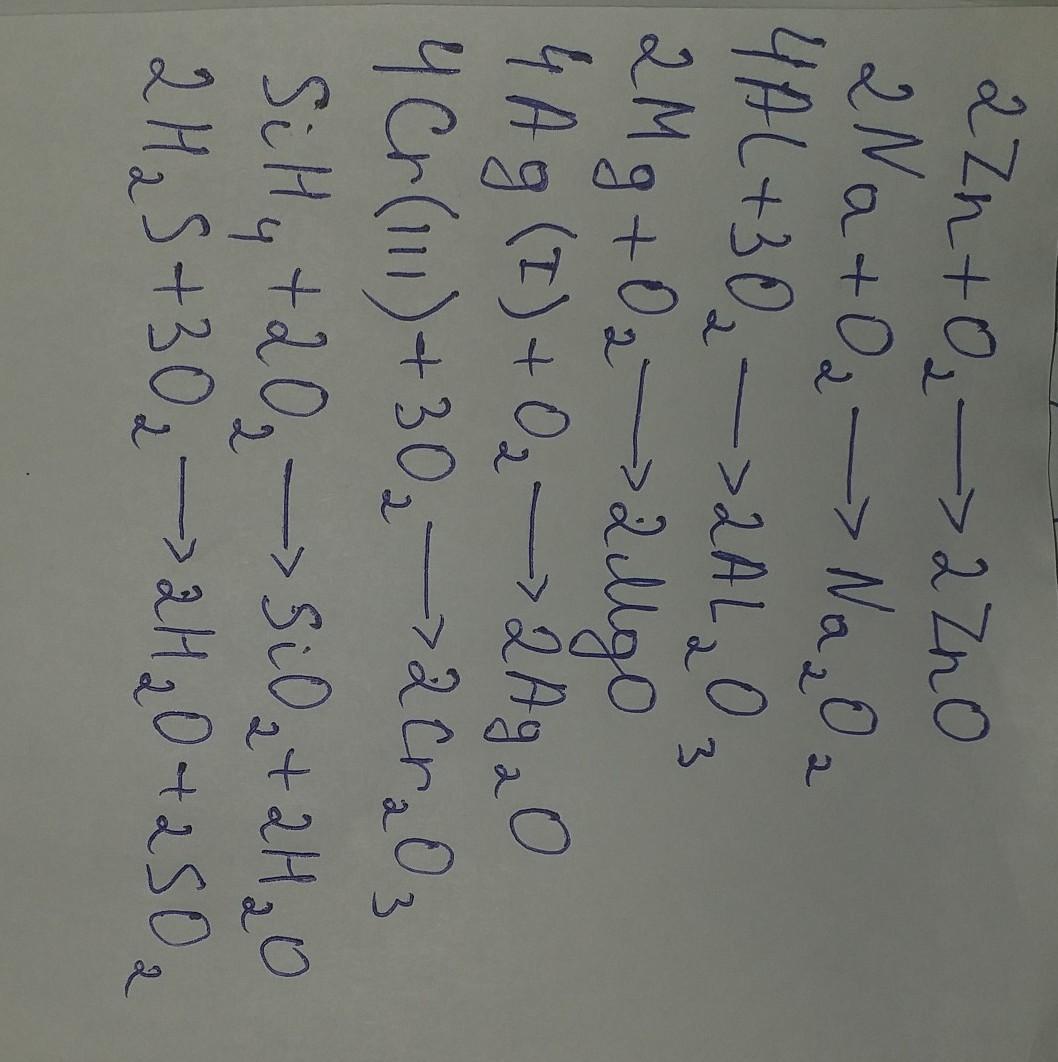 2Zn+O₂→2ZnO
2Na+O₂→Na₂O₂
4Al+3O₂→2Al₂O₃
2Mg+O₂→2MgO
4Ag(I)+O₂→2Ag₂O
4Cr(III)+3O₂→2Cr₂O₃
SiH₄+2O₂→SiO₂+2H₂O
2H₂S+3O₂→2H₂O+2SO₂